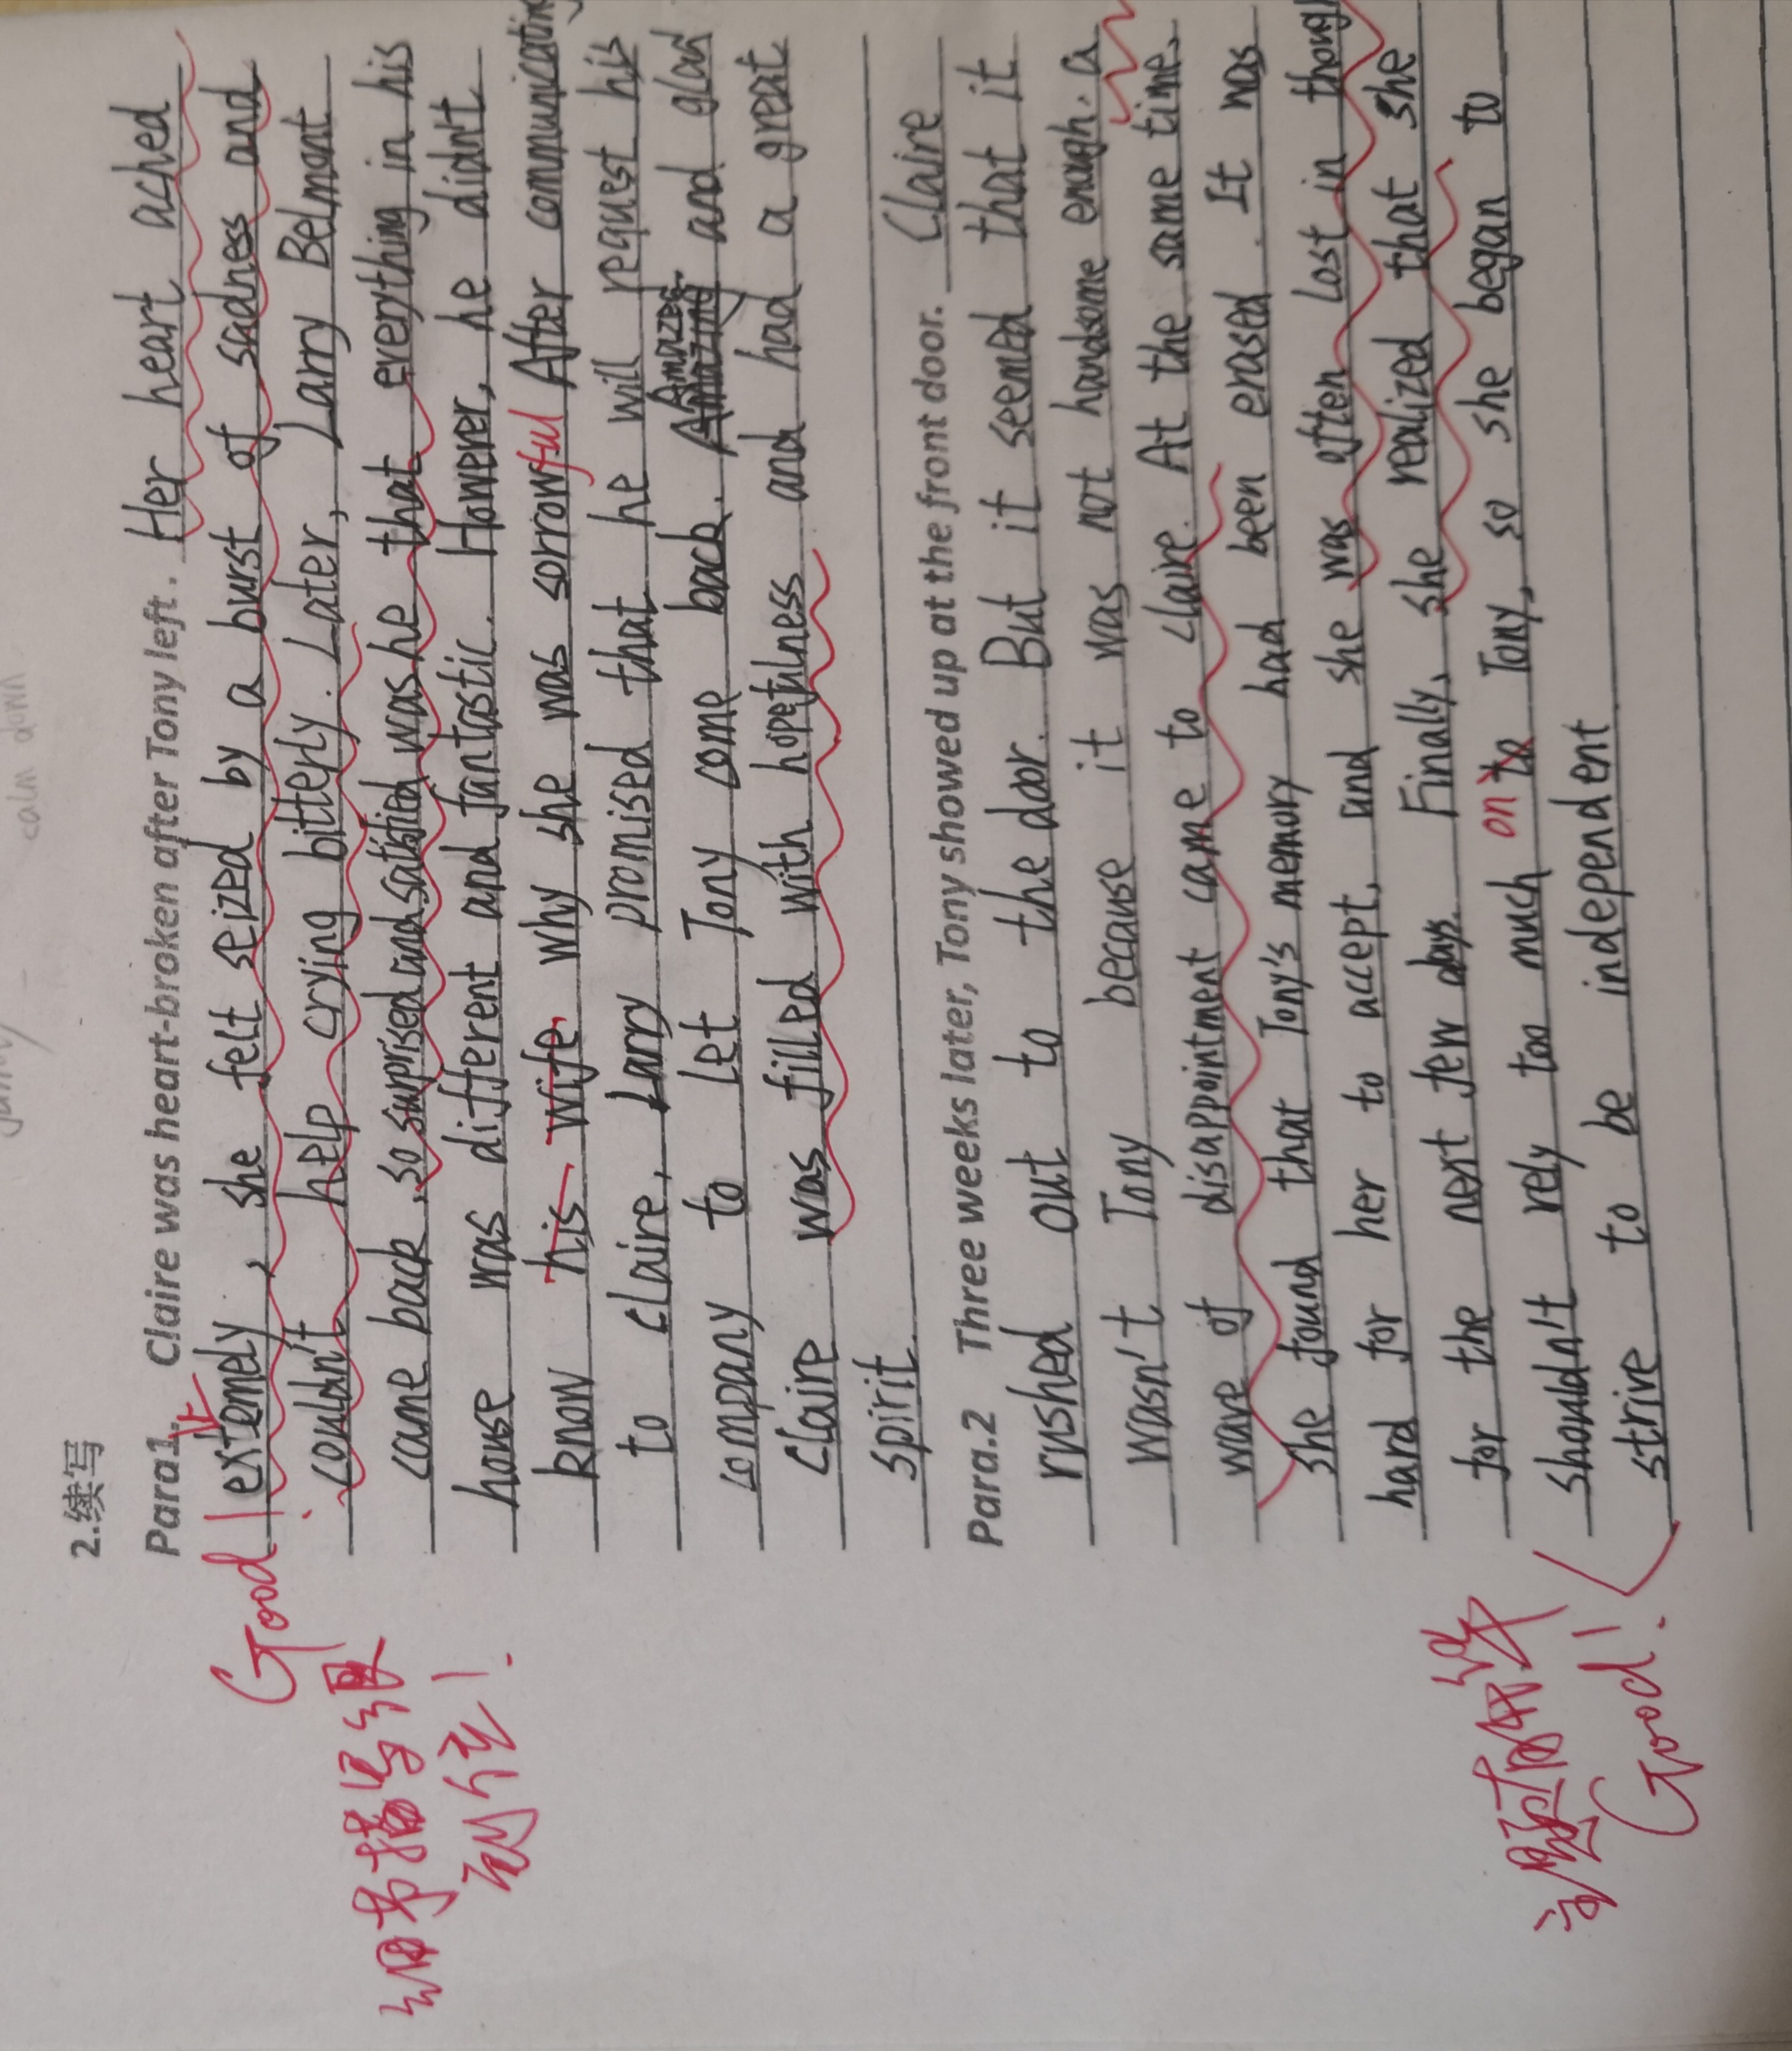 2.续写
Para1. Claire was heart-broken after Tony left. Her heart ached
extemely, she felt seized by a burst of sadness and
couldn't help crying bitterly. Later, Larry Belmont
came back, so surprised and satisfied was he that everything in his
house was different and fantastic. However, he didn't
know his wife, why she was sorrowful After communicating
to claire, Larry promised that he will request his
company to let Tony come back. Amazed and glad
claire was filled with hopefulness and had a great
spirit.
Para.2 Three weeks later, Tony showed up at the front door. Claire
rushed out to the door. But it seemed that it
wasn't Tony because it was not handsome enough. a
wave of disappointment came to claire. At the same time,
she found that Tony's memory had been erased. It was
hard for her to accept, and she was often lost in though
for the next few days. Finally, she realized that she
shouldn't rely too much on to Tony, so she began to
strive to be independent
Good
细节描写很
到位!
主题有体现
Good!
calm down